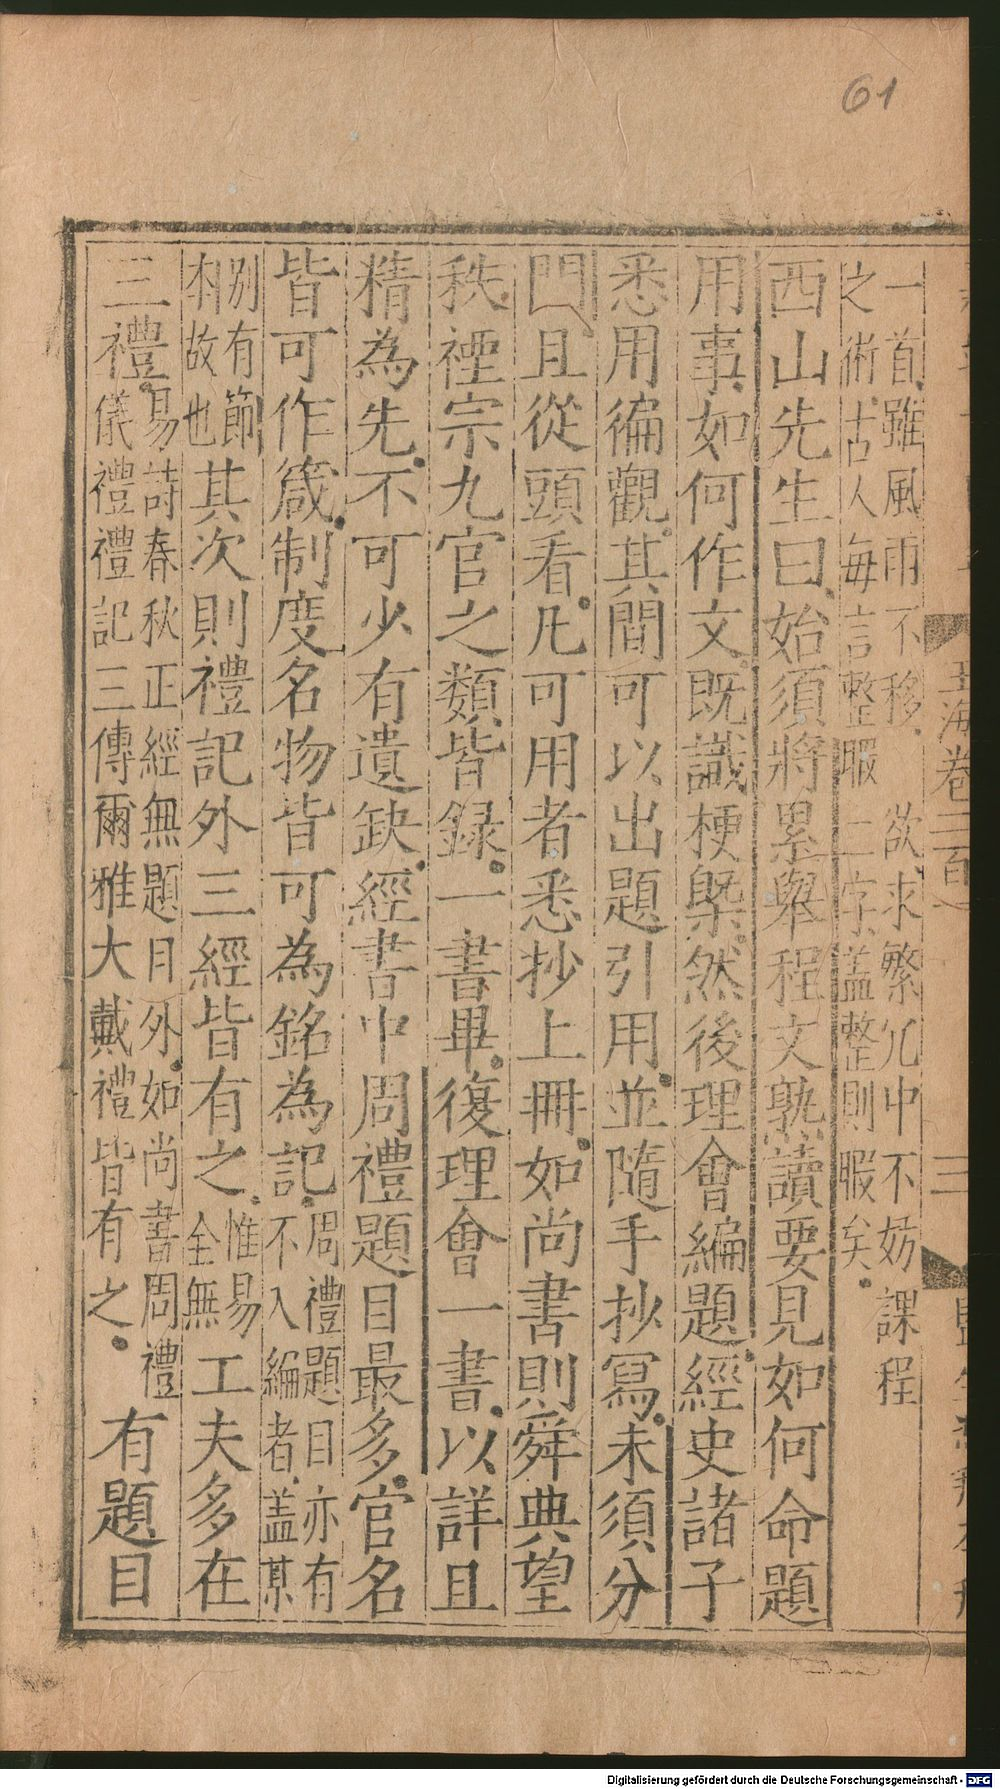 61
玉海卷二百一
三
一首雖風雨不移欲求繁冗中不妨課程
之術古人每言整暇二字蓋整則暇矣
西山先生曰始須將累舉程文熟讀要見如何命題
用事如何作文既識梗槩然後理會編題經史諸子
悉用徧觀其間可以出題引用並隨手抄寫未須分
門且從頭看凡可用者悉抄上冊如尚書則舜典望
秩禋宗九官之類皆録一書畢復理會一書以詳且
精為先不可少有遺缺經書中周禮題目最多官名
皆可作箴制度名物皆可為銘為記周禮題目亦有
不入編者蓋某
别有節
本故也其次則禮記外三經皆有之惟易
全無工夫多在
三禮易詩春秋正經無題目外如尚書周禮
儀禮禮記三傳爾雅大戴禮皆有之有題目
Digitalisierung gefördert durch die Deutsche Forschungsgemeinschaft - DFG